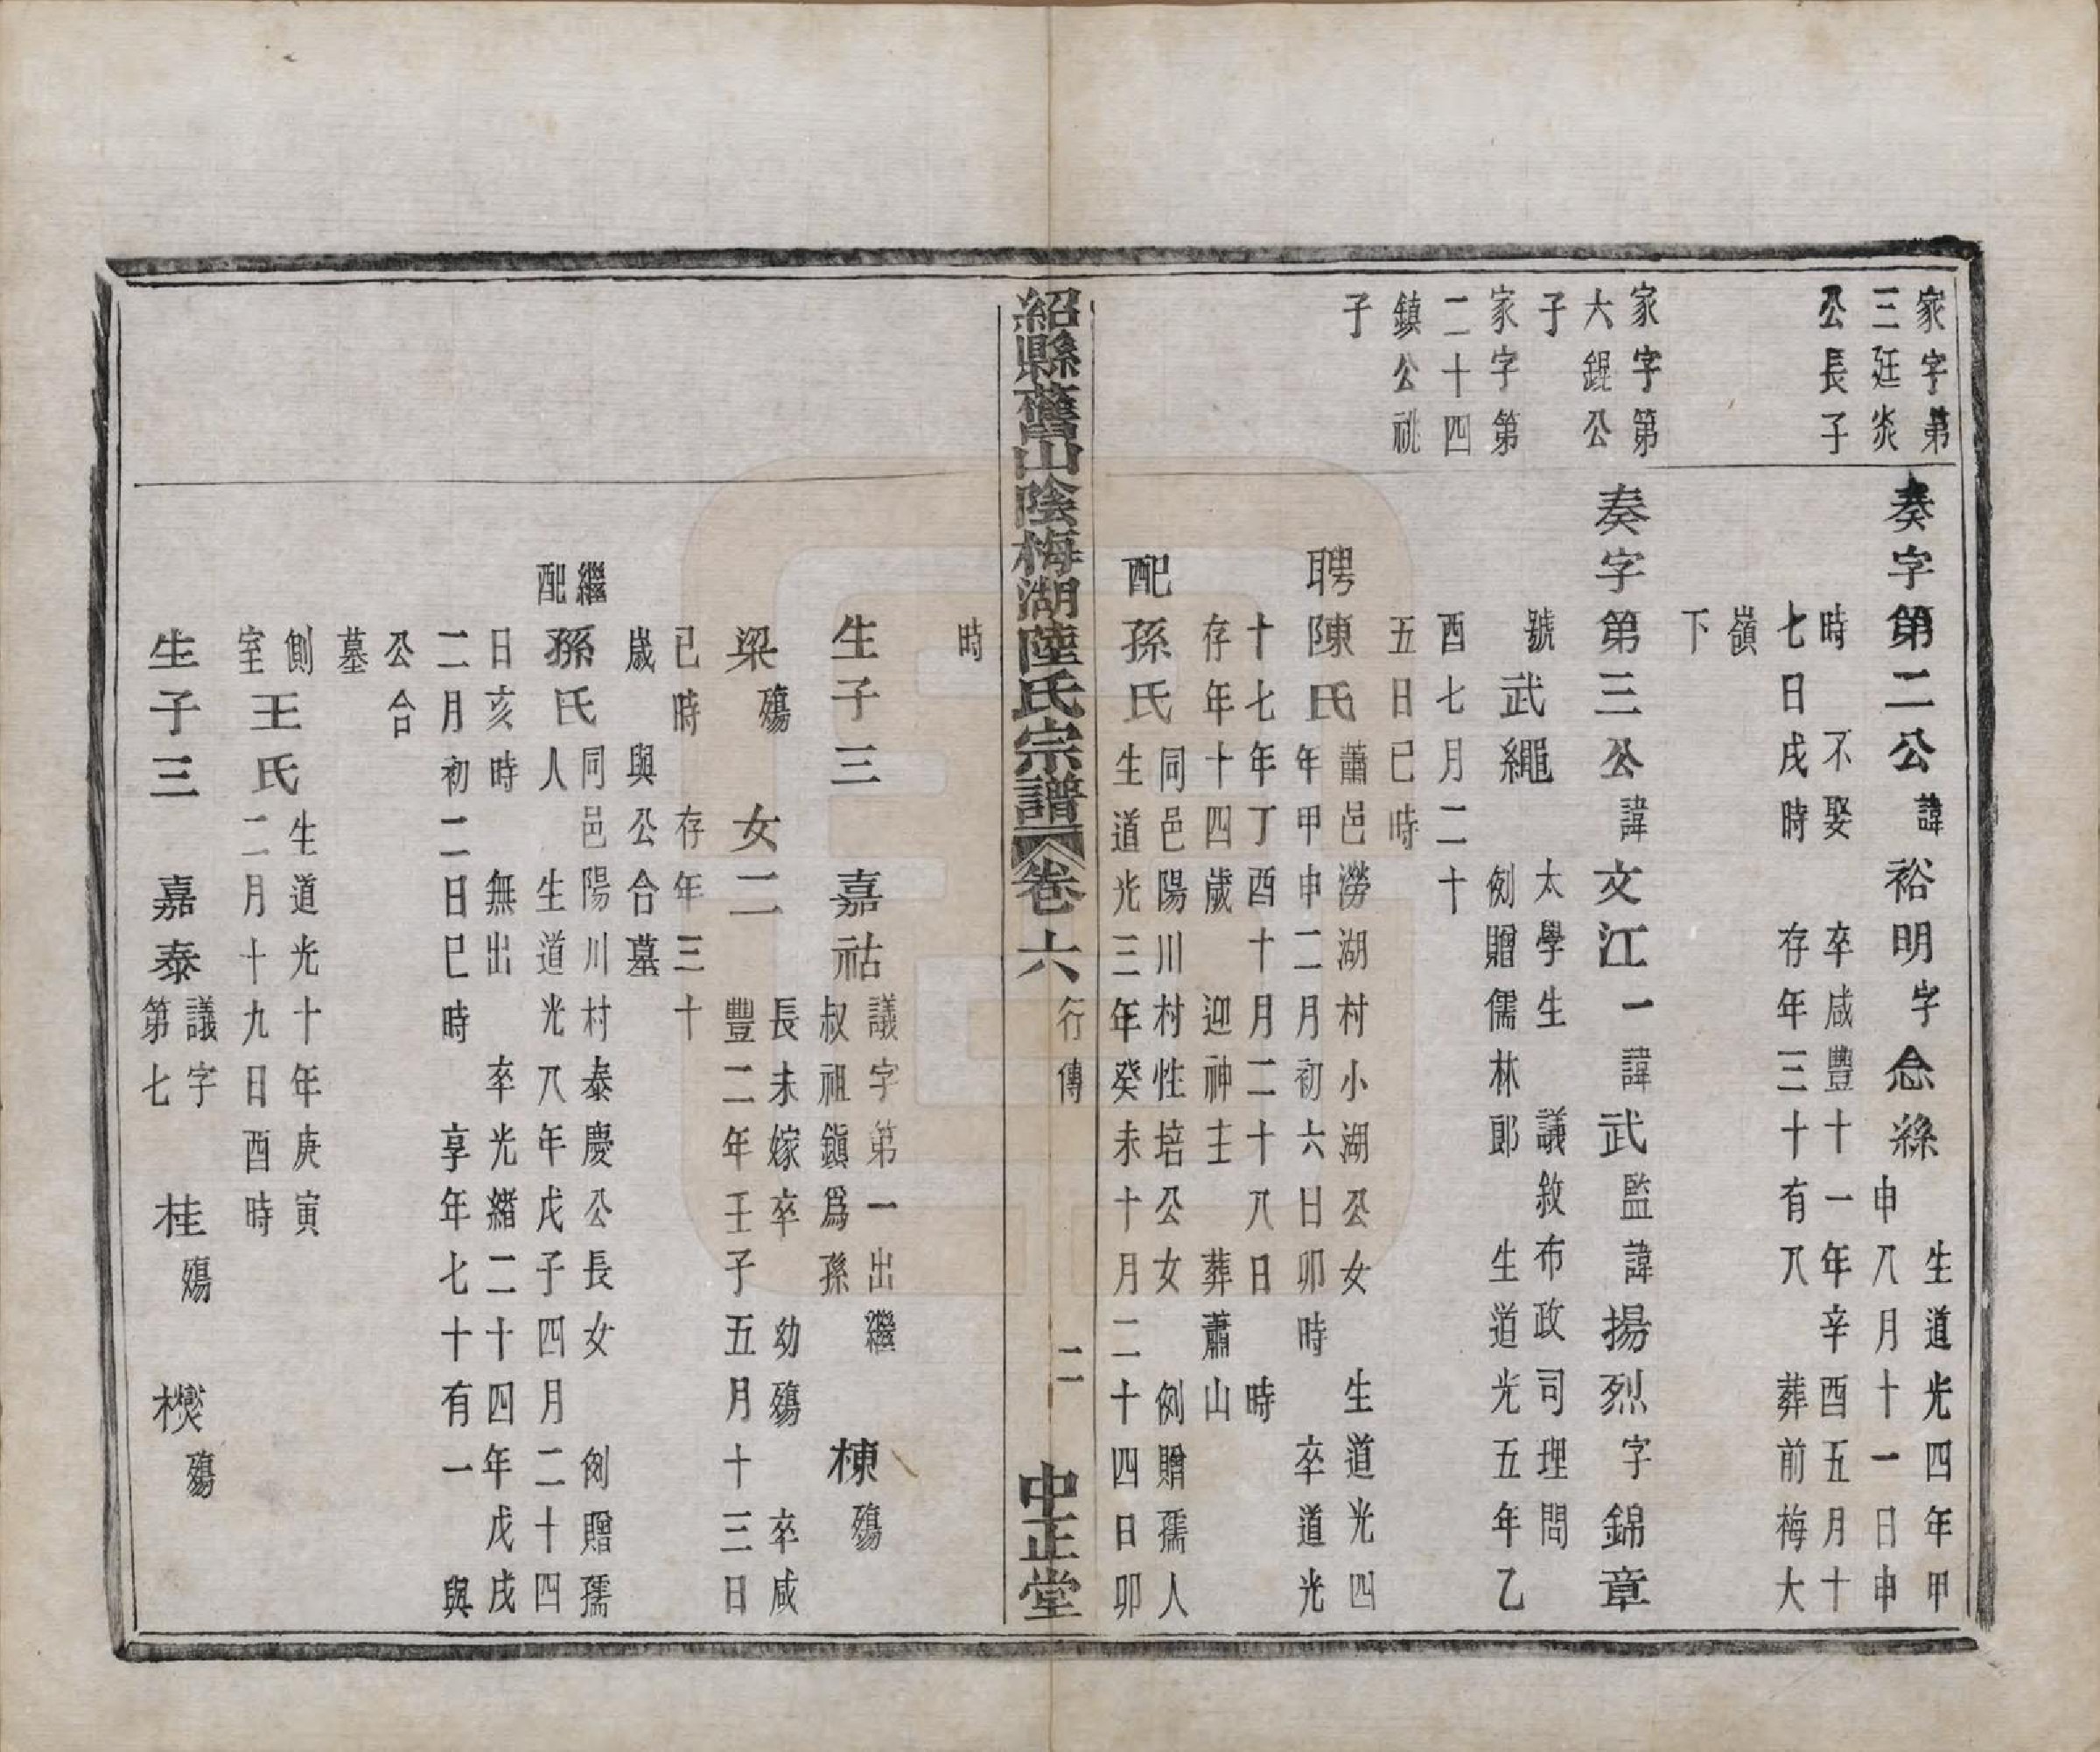 家字第
三廷炎
公長子
奏字第二公諱裕明字念絲
生道光四年甲
申八月十一日申
時　不娶　卒咸豐十一年辛酉五月十
七日戌時　存年三十有八　葬前梅大
嶺
下
家字第
大錕公
子
家字第
二十四
鎮公祧
子
奏字第三公諱文江一諱武監諱揚烈字錦章
號武繩
太學生　議敘布政司理問
例贈儒林郎　生道光五年乙
酉七月二十
五日巳時
聘陳氏
蕭邑澇湖村小湖公女　生道光四
年甲申二月初六日卯時　卒道光
十七年丁酉十月二十八日　時
存年十四歲　迎神主　葬蕭山
配孫氏
同邑陽川村性培公女　例贈孺人
生道光三年癸未十月二十四日卯
紹縣舊山陰梅湖陸氏宗譜　卷六　行傳　二　中正堂
時
生子三　嘉祜
議字第一出繼
叔祖鎮爲孫
棟殤
梁殤　女二
長未嫁卒　幼殤　卒咸
豐二年壬子五月十三日
巳時　存年三十
歲　與公合墓
繼
配
孫氏
同邑陽川村泰慶公長女　例贈孺
人　生道光八年戊子四月二十四
日亥時　無出　卒光緒二十四年戊戌
二月初二日巳時　享年七十有一　與
公合
墓
側
室
王氏
生道光十年庚寅
二月十九日酉時
生子三　嘉泰
議字
第七
桂殤　樾殤